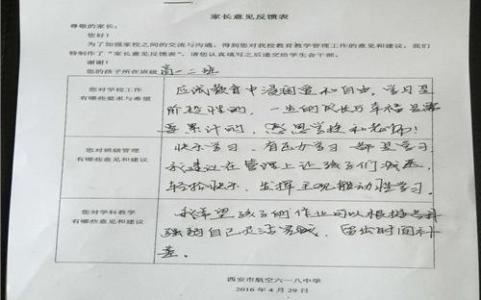 家长意见反馈表
尊敬的家长：
您好！
为了加强家校之间的交流与沟通，得到您对我校教育教学管理工作的意见和建议，我们
特制作了“家长意见反馈表”，请您认真填写之后递交给学生会干部。
谢谢！
您的孩子所在班级 高一二班
您对学校工作
有哪些要求与希望
应试教育中 和自由，学习是
阶段性的，一生的成长与幸福是需
要累计的，感恩学校和老师！
您对班级管理
有哪些意见和建议
快乐学习、有压力学习 都是学习
我建议在管理上让孩子们减压，
轻松快乐，发挥主观能动性学习。
您对学科教学
有哪些意见和建议
我希望孩子们作业可以根据学科
强弱自己 ，留出时间补
差。
西安市航空六一八中学
2016 年 4 月 29 日